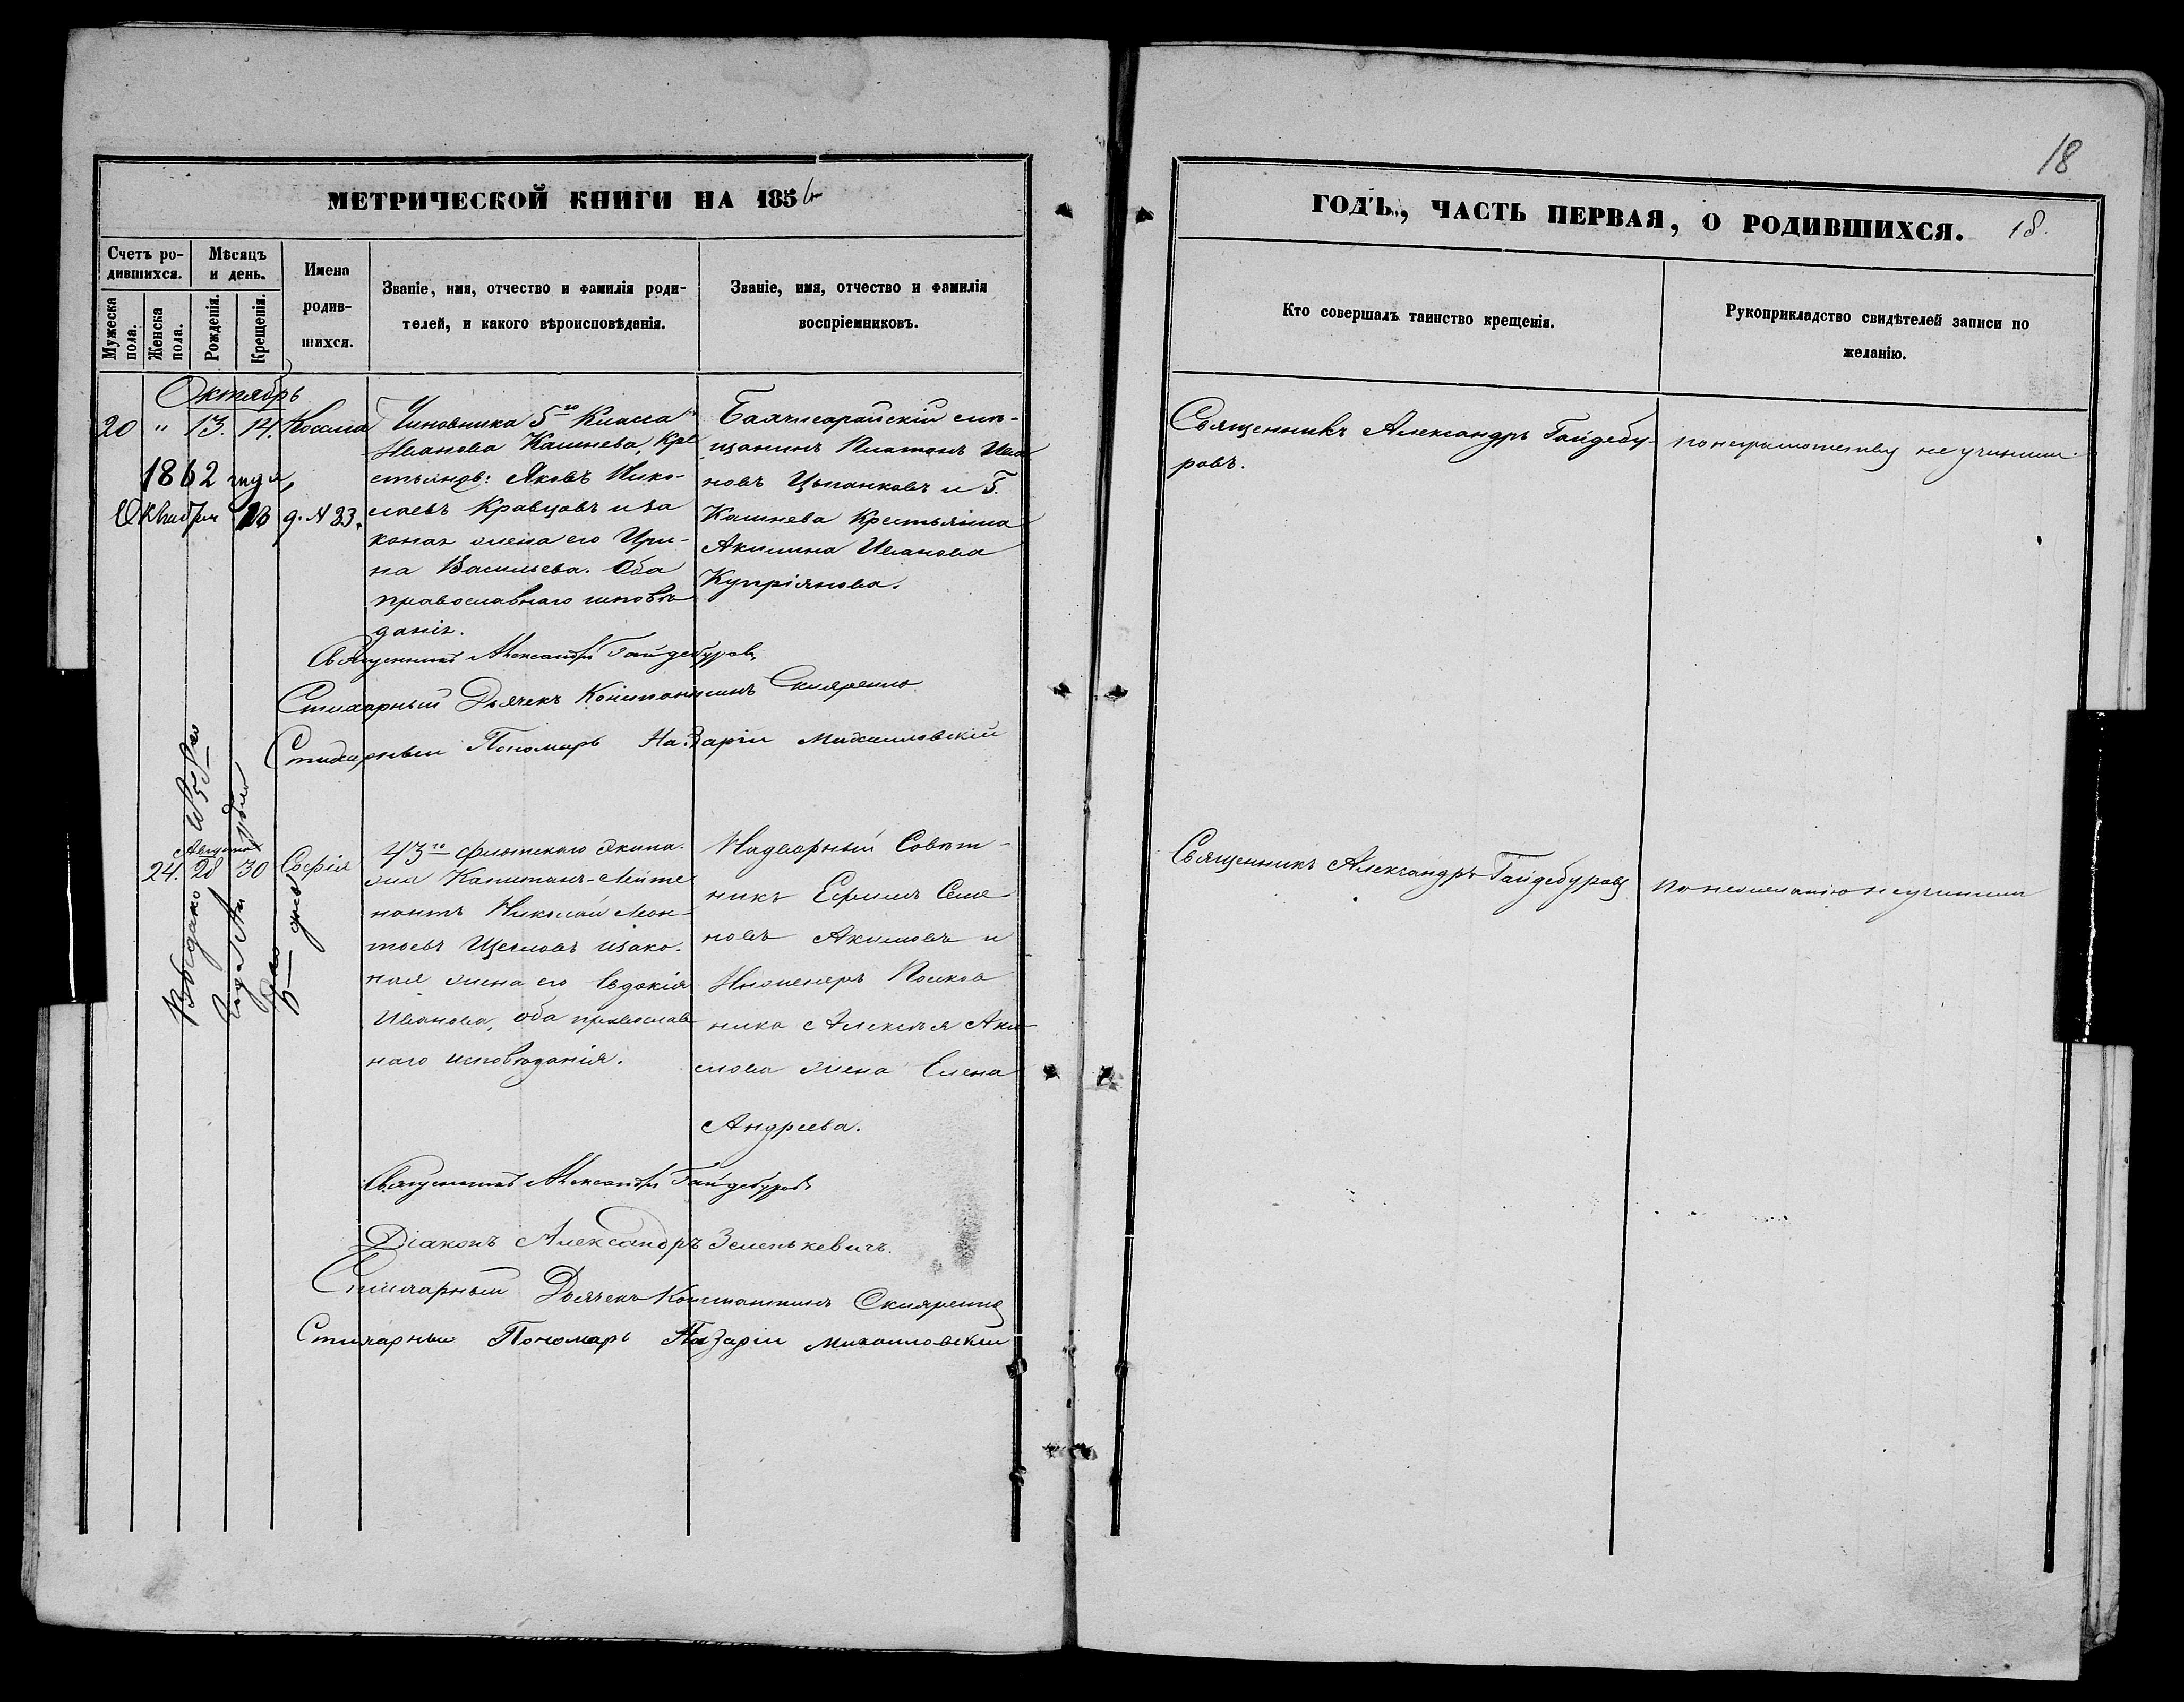 18
МЕТРИЧЕСКОЙ КНИГИ НА 1856
ГОДЪ, ЧАСТЬ ПЕРВАЯ, О РОДИВШИХСЯ.
18.
Счетъ ро-
дившихся.
Мѣсяцъ
и день.
Мужеска
пола.
Женска
пола.
Рожденія.
Крещенія.
Имена
родив-
шихся.
Званіе, имя, отчество и фамилія роди-
телей, и какого вѣроисповѣданія.
Званіе, имя, отчество и фамилія
воспріемниковъ.
Кто совершалъ таинство крещенія.
Рукоприкладство свидѣтелей записи по
желанію.
Октябрь
20 " 13. 14. Косма
1862 года,
Октября 13 д. № 33.
Чиновника 5го Класса
Иванова Кашнева, Кре
стьянъ: Яковъ Нико-
лаевъ Кравцовъ и за
конная жена его Ири-
на Васильева. Оба
православнаго исповѣ
данія.
Бахчисарайскій мѣ-
щанинъ Платонъ Ива
новъ Цыганковъ и Г.
Кашнева Крестьянка
Акилина Иванова
Купріянова.
Священникъ Александръ Гайдебу-
ровъ.
по неграмотству не учинили.
Священникъ Александръ Гайдебуровъ
Стихарный Дьячекъ Константинъ Скляренко
Стихарный Пономарь Назарій Михайловскій
Августа
24. 28 30 Софія
Выдано
43го флотскаго экипа-
жа Капитанъ-Лейте
нантъ Николай Леон-
тьевъ Щегловъ и зако-
нная жена его Евдокія
Иванова, оба православ
наго исповѣданія.
Надворный Совѣт-
никъ Ефимъ Семе
новъ Акимовъ и
Инженеръ Полков
ника Алексѣя Аки-
мова жена Елена
Андреева.
Священникъ Александръ Гайдебуровъ
По нежеланію не учинили
Священникъ Александръ Гайдебуровъ
Діаконъ Александръ Зеленькевичъ.
Стихарный Дьячекъ Константинъ Скляренко
Стихарный Пономарь Назарій Михайловскій